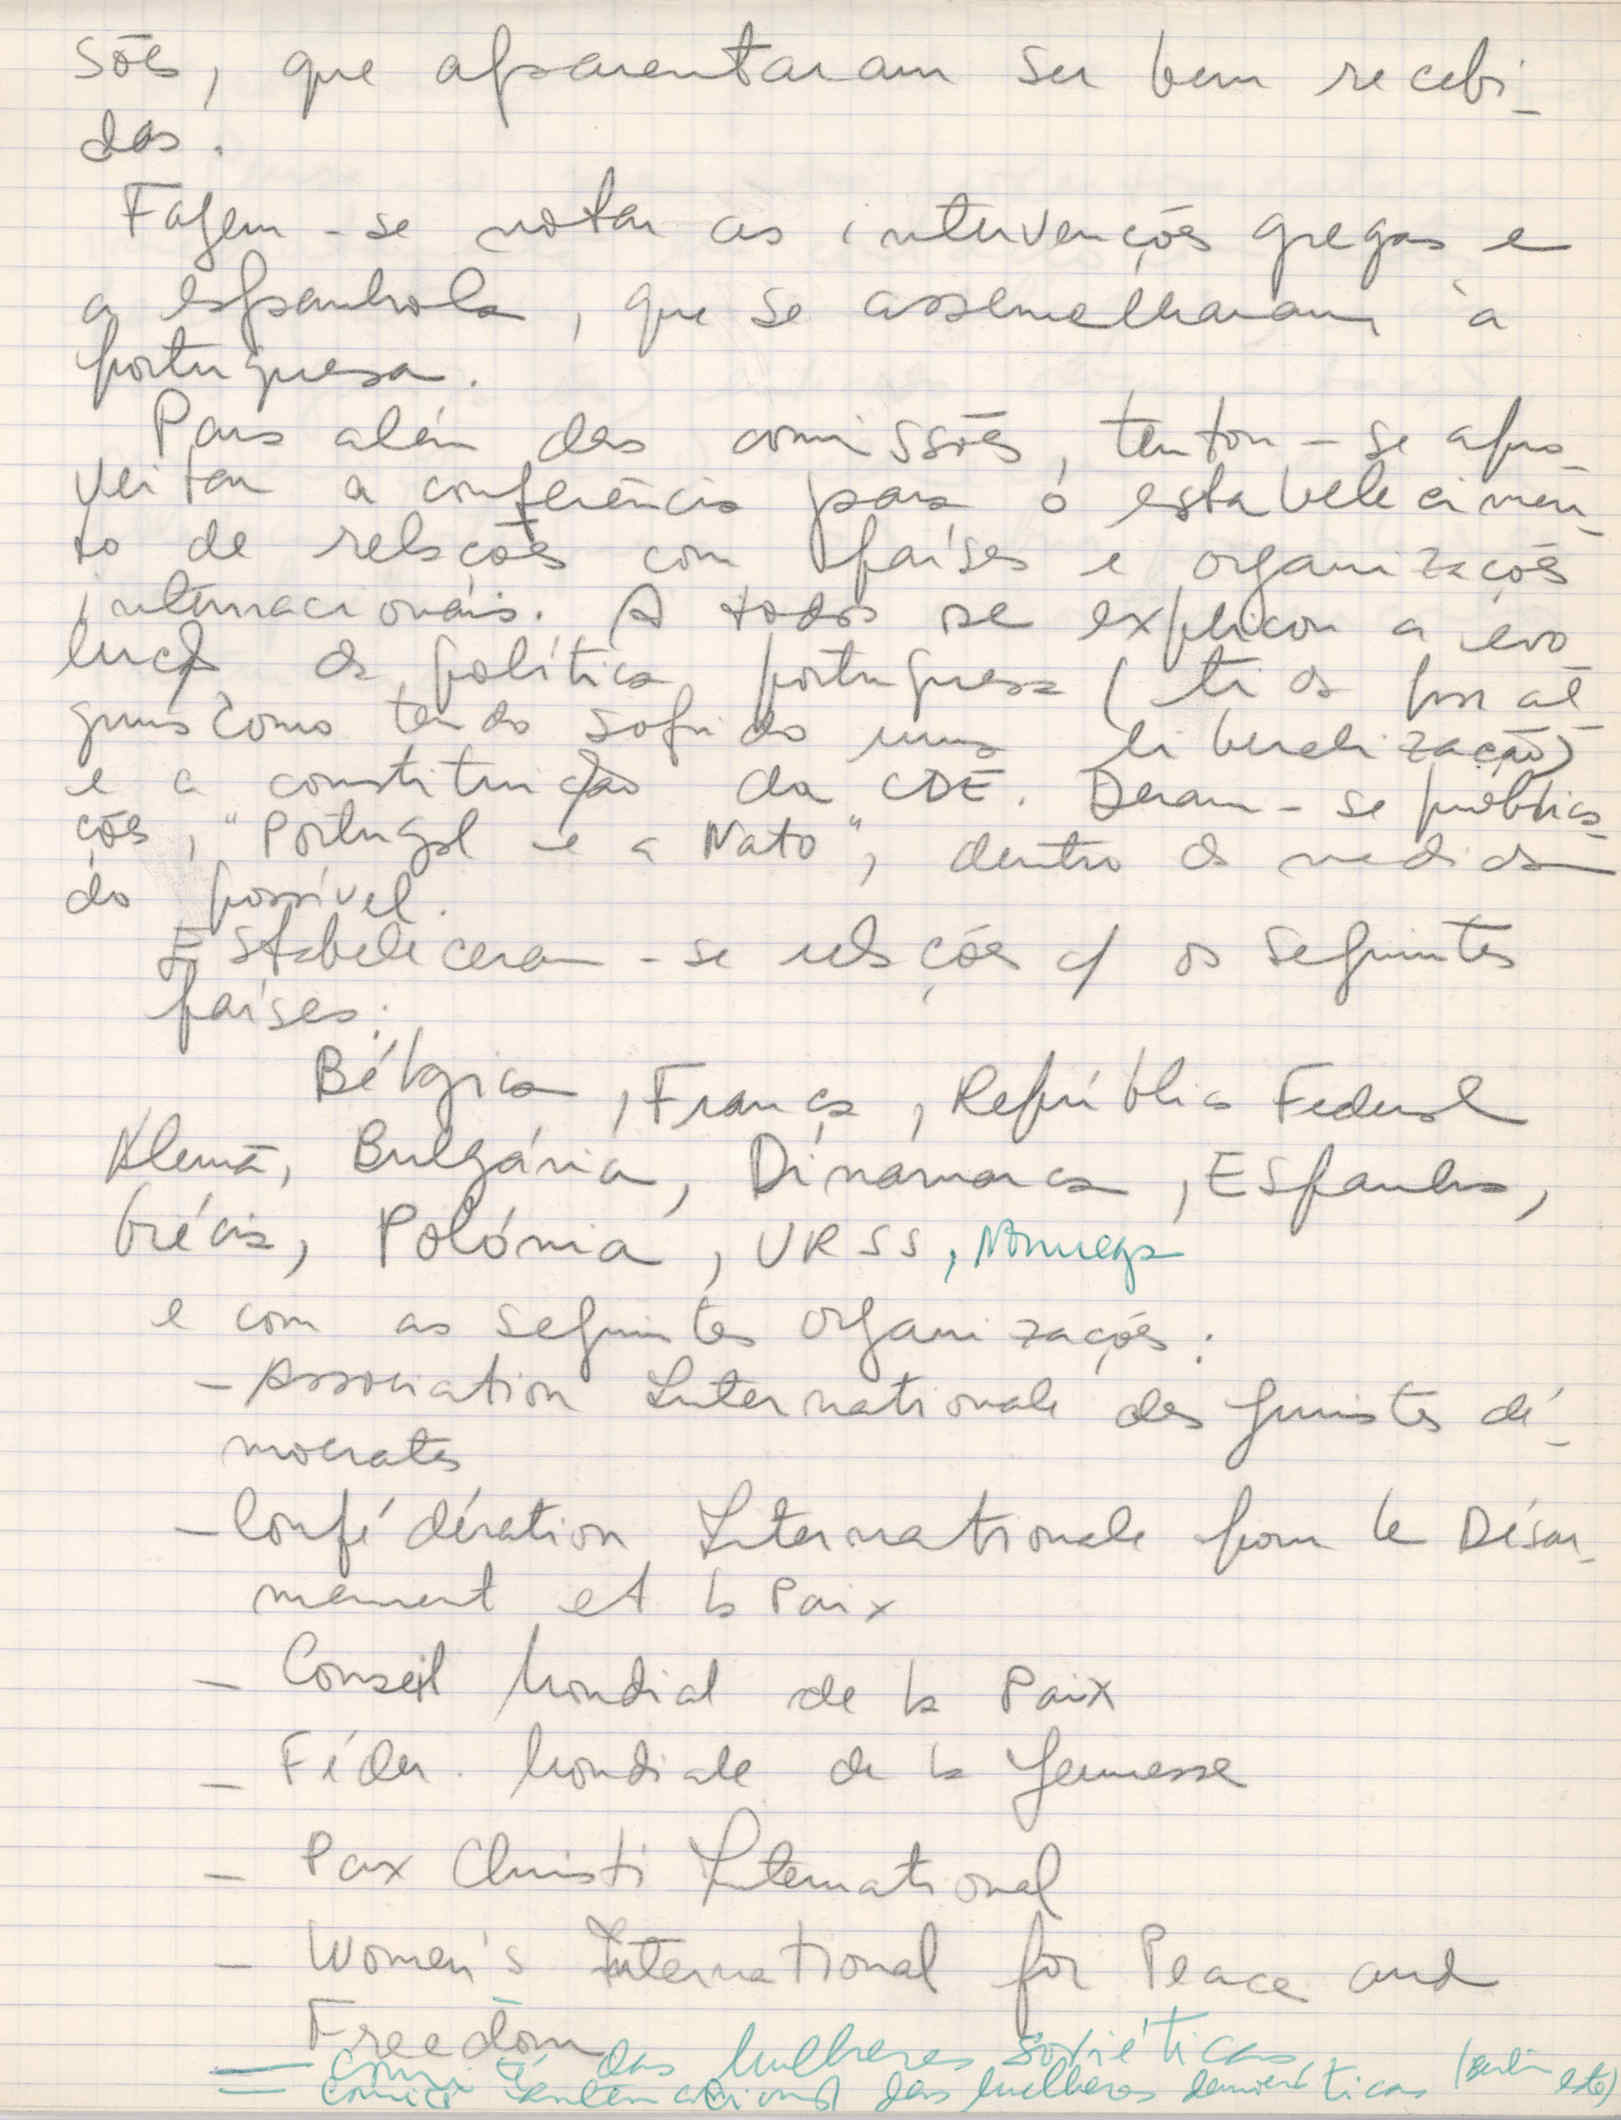 sões, que aparentaram ser bem recebi-
das.
Fazem-se notar as intervenções gregas e
a espanhola, que se assemelharam à
portuguesa.
Para além das comissões, tentou-se apro-
veitar a conferência para o estabelecimen-
to de relações com países e organizações
internacionais. A todos se explicou a evo
lução da política portuguesa (tida por al-
guns como tendo sofrido uma liberalização)
e a constituição da CDE. Deram-se publica-
ções, "Portugal e a Nato", dentro da medida
do possível.
Estabeleceram-se relações c/ os seguintes
países:
Bélgica, França, República Federal
Alemã, Bulgária, Dinamarca, Espanha,
Grécia, Polónia, URSS, Noruega
e com as seguintes organizações:
- Association Internationale des Juristes dé-
mocrates
- Confédération Internationale pour le Désar-
mement et la Paix
- Conseil Mondial de la Paix
- Féder. Mondiale de la Jeunesse
- Pax Christi International
- Women's International for Peace and
Freedom
- Comité das Mulheres Soviéticas
- Comité Internacional das Mulheres democráticas (Berlin este)